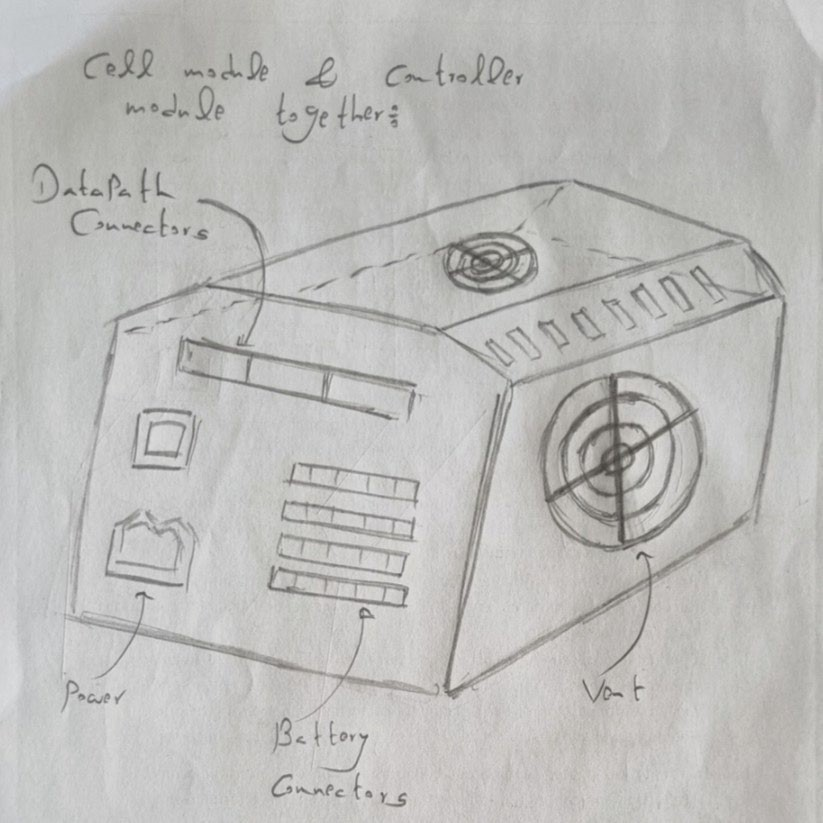 Cell module & Controller
module together:
DataPath
Connectors
Power
Battery
Connectors
Vent